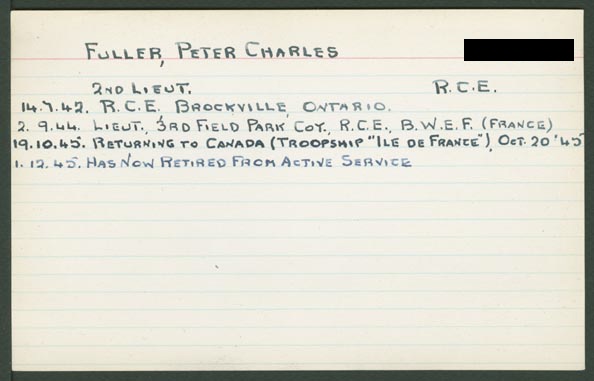 FULLER, PETER CHARLES
2ND LIEUT. R.C.E.
14.7.42. R.C.E. BROCKVILLE, ONTARIO.
2.9.44. LIEUT., 3RD FIELD PARK COY., R.C.E., B.W.E.F. (FRANCE)
19.10.45. RETURNING TO CANADA (TROOPSHIP "ILE DE FRANCE"), OCT. 20 '45
1.12.45. HAS NOW RETIRED FROM ACTIVE SERVICE